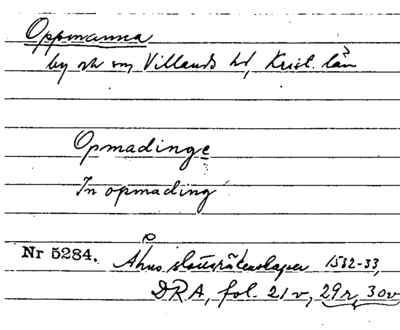 Oppmanna
by sn om Villands hd, Krist. län
Opmadinge
In opmading
Nr 5284. Åhus slottsräkenskaper 1532-33,
DRA, fol. 21 v, 29 r, 30 v